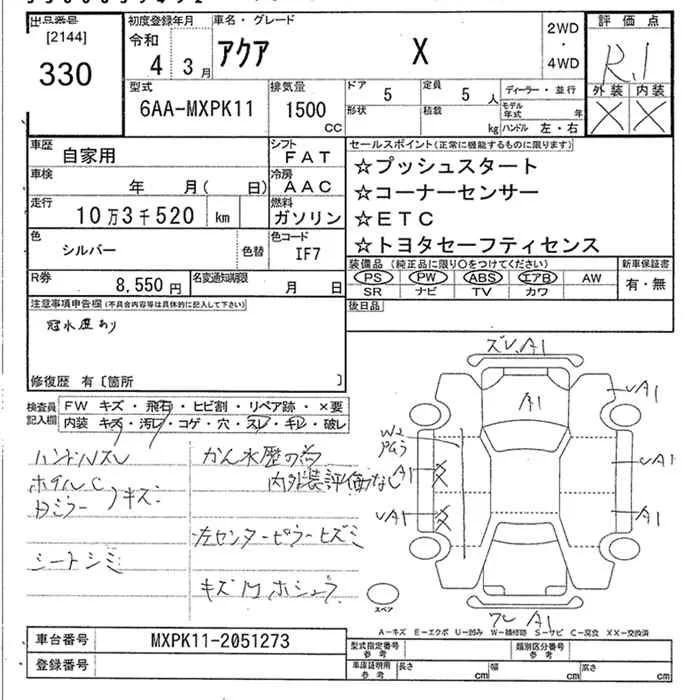 出品番号
[2144]
330
初度登録年月
令和
4 3月
車名・グレード
アクア X
2WD
・
4WD
評価点
R.1
外装 内装
X X
型式
6AA-MXPK11
排気量
1500
CC
ドア
5
形状
定員
5 人
積載
kg
ディーラー・並行
モデル
年式 年
ハンドル 左・右
車歴
自家用
シフト
FAT
車検
年 月( 日)
冷房
AAC
走行
10万3千520 km
燃料
ガソリン
色
シルバー
色替
色コード
IF7
R券
8,550円
名変通知期限
月 日
セールスポイント(正常に機能するものに限ります)
☆プッシュスタート
☆コーナーセンサー
☆ETC
☆トヨタセーフティセンス
装備品(純正品に限り○をつけてください)
PS PW ABS エアB AW
SR ナビ TV カワ
新車保証書
有・無
後日品
注意事項申告欄(不具合内容等は具体的に記入して下さい)
冠水歴あり
修復歴 有〔箇所 〕
検査員
記入欄
FW キズ・飛石・ヒビ割・リペア跡・×要
内装 キズ・汚レ・コゲ・穴・スレ・キレ・破レ
ハンドルスレ
ホイルC
ミラー キズ
シートシミ
かん水歴の為
内外装評価なし
左センターピラーヒズミ
キズ
ズレ、A1
A1
A1
W2
A1
A1
A1
A1
A1
スペア
A-キズ E-エクボ U-凹み W-補修跡 S-サビ C-腐食 XX-交換済
車台番号
MXPK11-2051273
登録番号
型式指定番号
参考
類別区分番号
参考
車庫証明用
参考
長さ cm 幅 cm 高さ cm